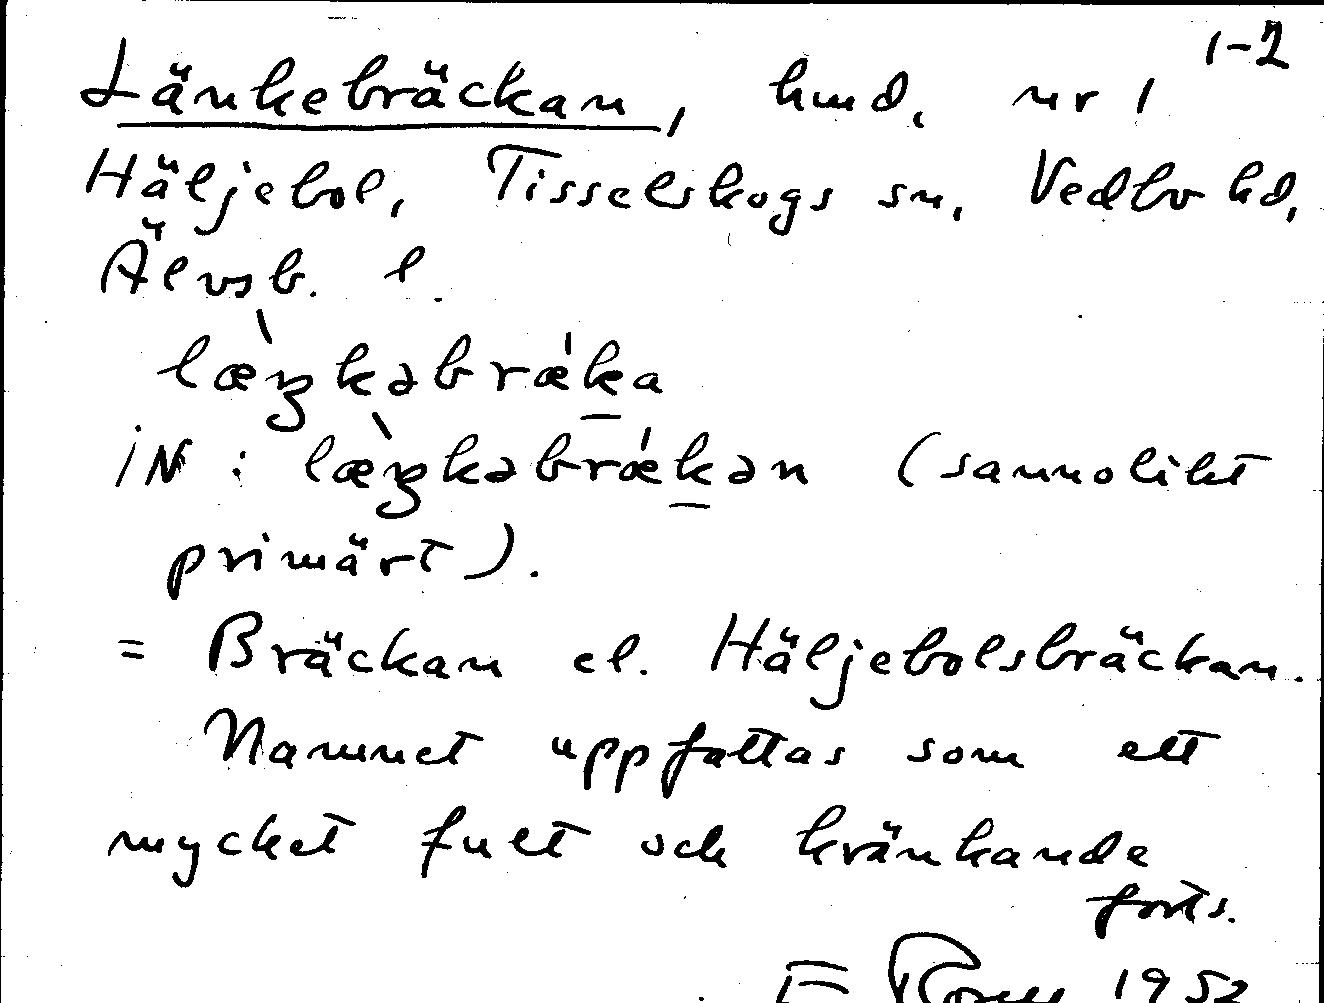 1-2
Länkebräckan, hmd. nr 1
Häljebol, Tisselskogs sn, Vedbo hd,
Älvsb. l.
læ̀ŋkəbrǽka
iN : læ̀ŋkəbrǽkən (sannolikt
primärt).
= Bräckan el. Häljebolsbräckan.
Namnet uppfattas som ett
mycket fult och kränkande
forts.
1952